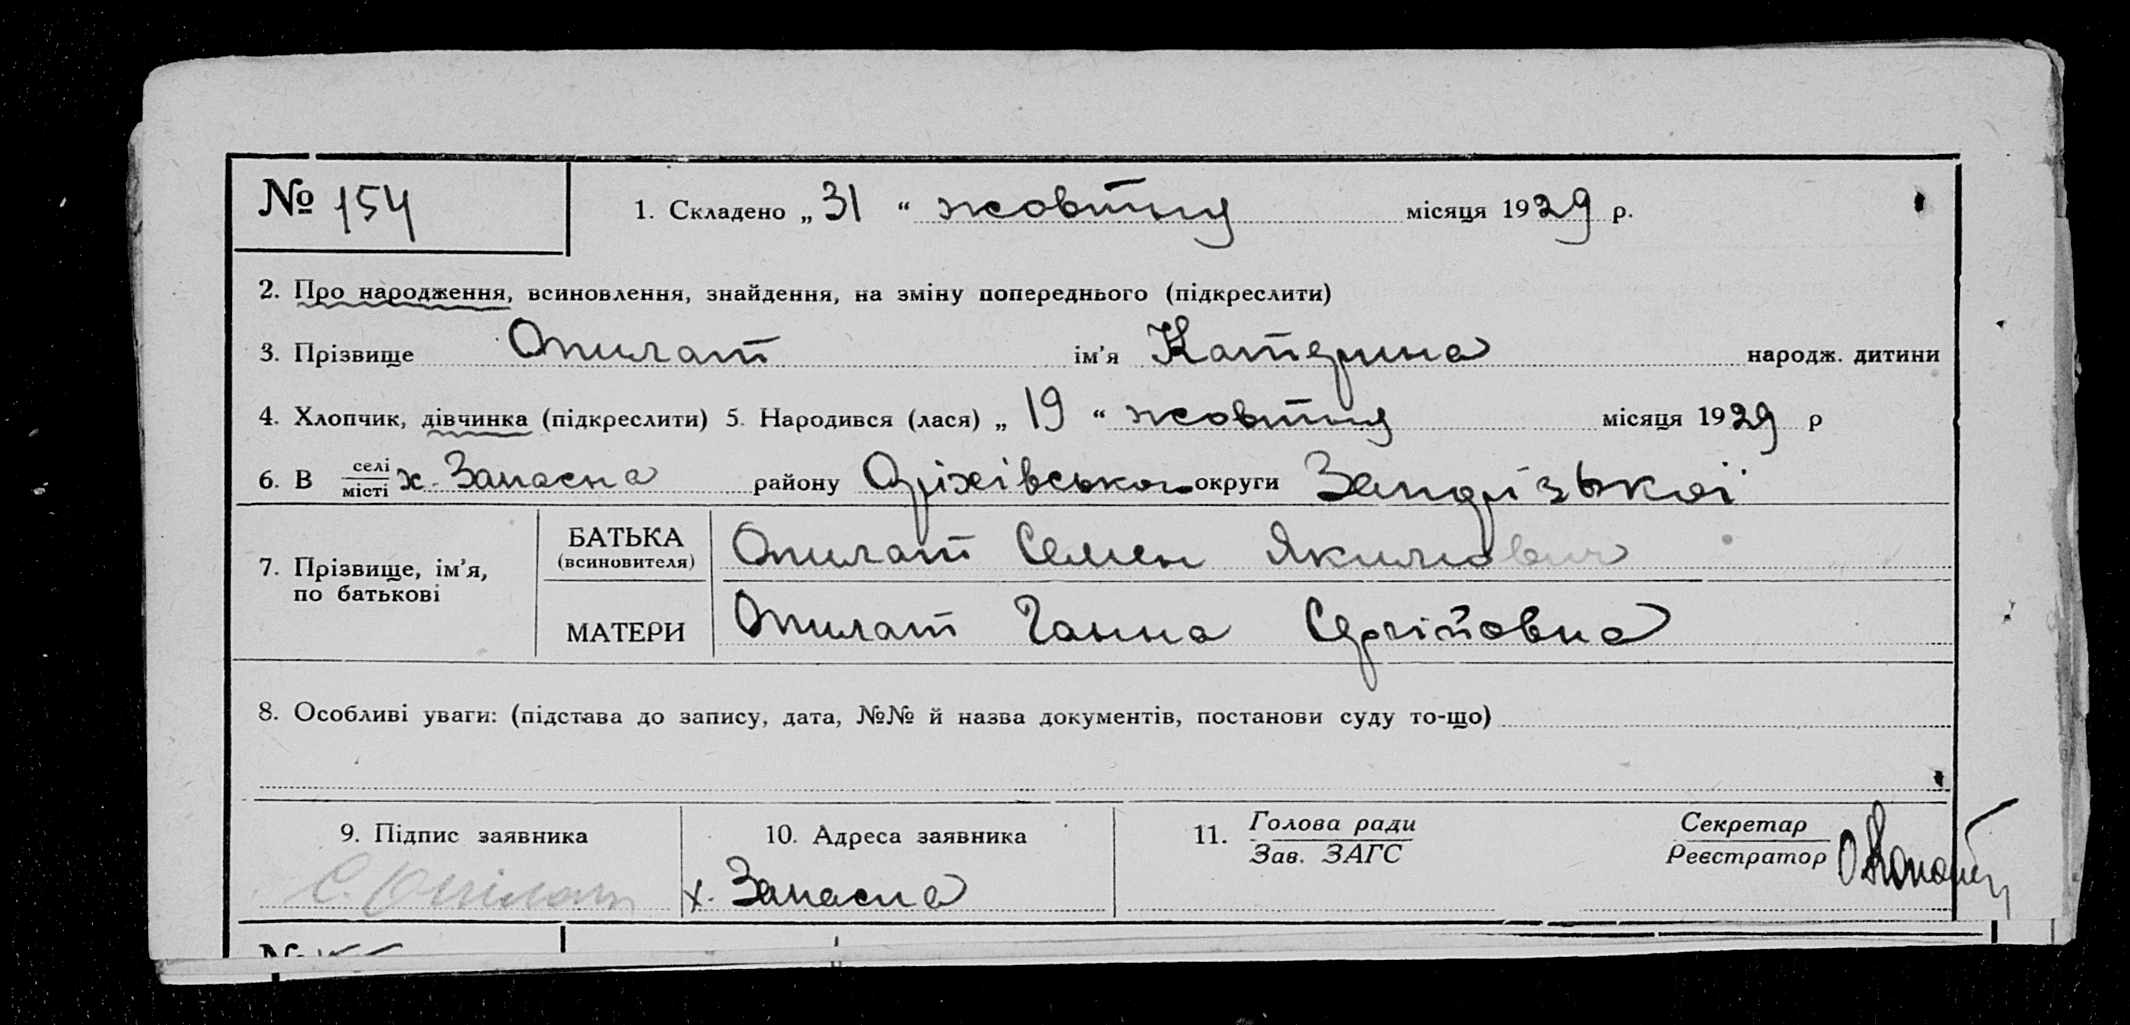 № 154
1. Складено „ 31 “ жовтня місяця 1929 р.
2. Про народження, всиновлення, знайдення, на зміну попереднього (підкреслити)
3. Прізвище Опилат ім'я Катерина народж. дитини
4. Хлопчик, дівчинка (підкреслити) 5. Народився (лася) „ 19 “ жовтня місяця 1929 р
6. В селі місті х. Запасна району Оріхівського округи Запорізької
7. Прізвище, ім'я, по батькові
БАТЬКА (всиновителя) Опилат Семен Якимович
МАТЕРИ Опилат Ганна Сергіївна
8. Особливі уваги: (підстава до запису, дата, №№ й назва документів, постанови суду то-що)
9. Підпис заявника
С. Опілат
10. Адреса заявника
х. Запасна
11. Голова ради
Зав. ЗАГС
Секретар
Реєстратор